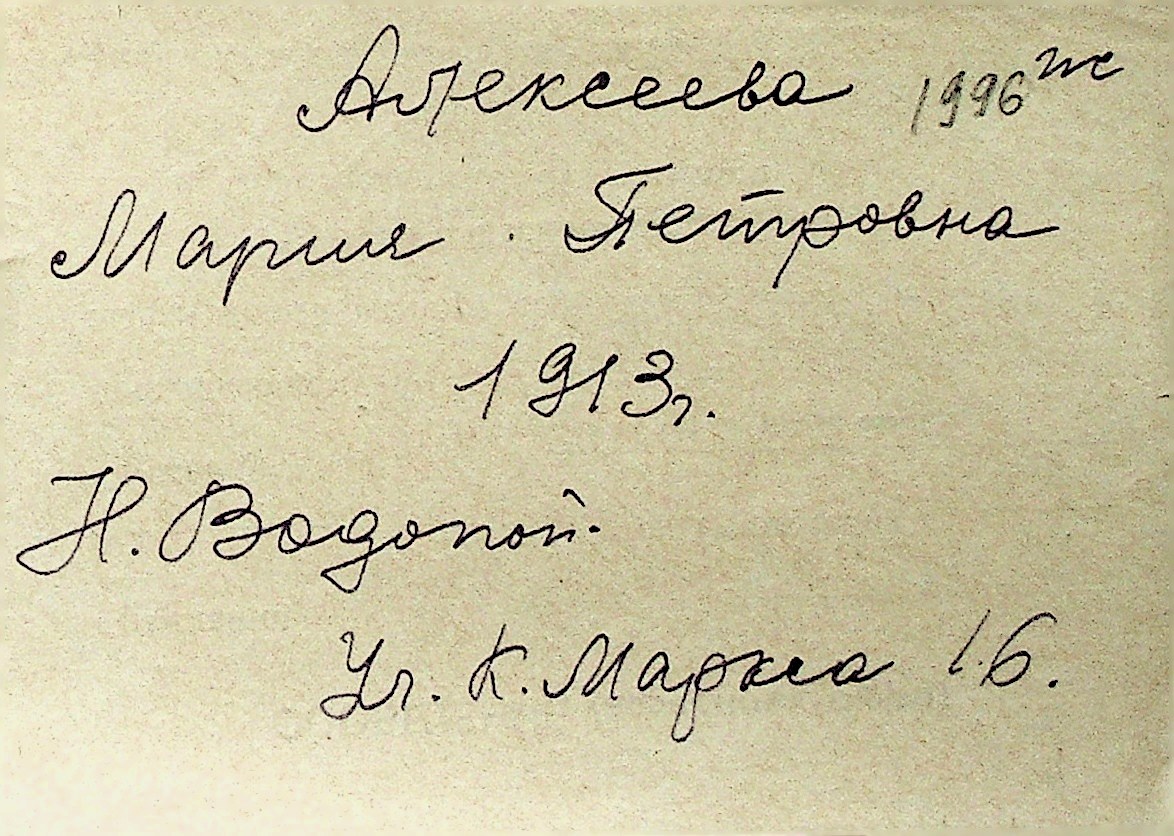 Алексеева 1996
Мария Петровна
1913г.
Н. Водопой.
Ул. К. Маркса 16.